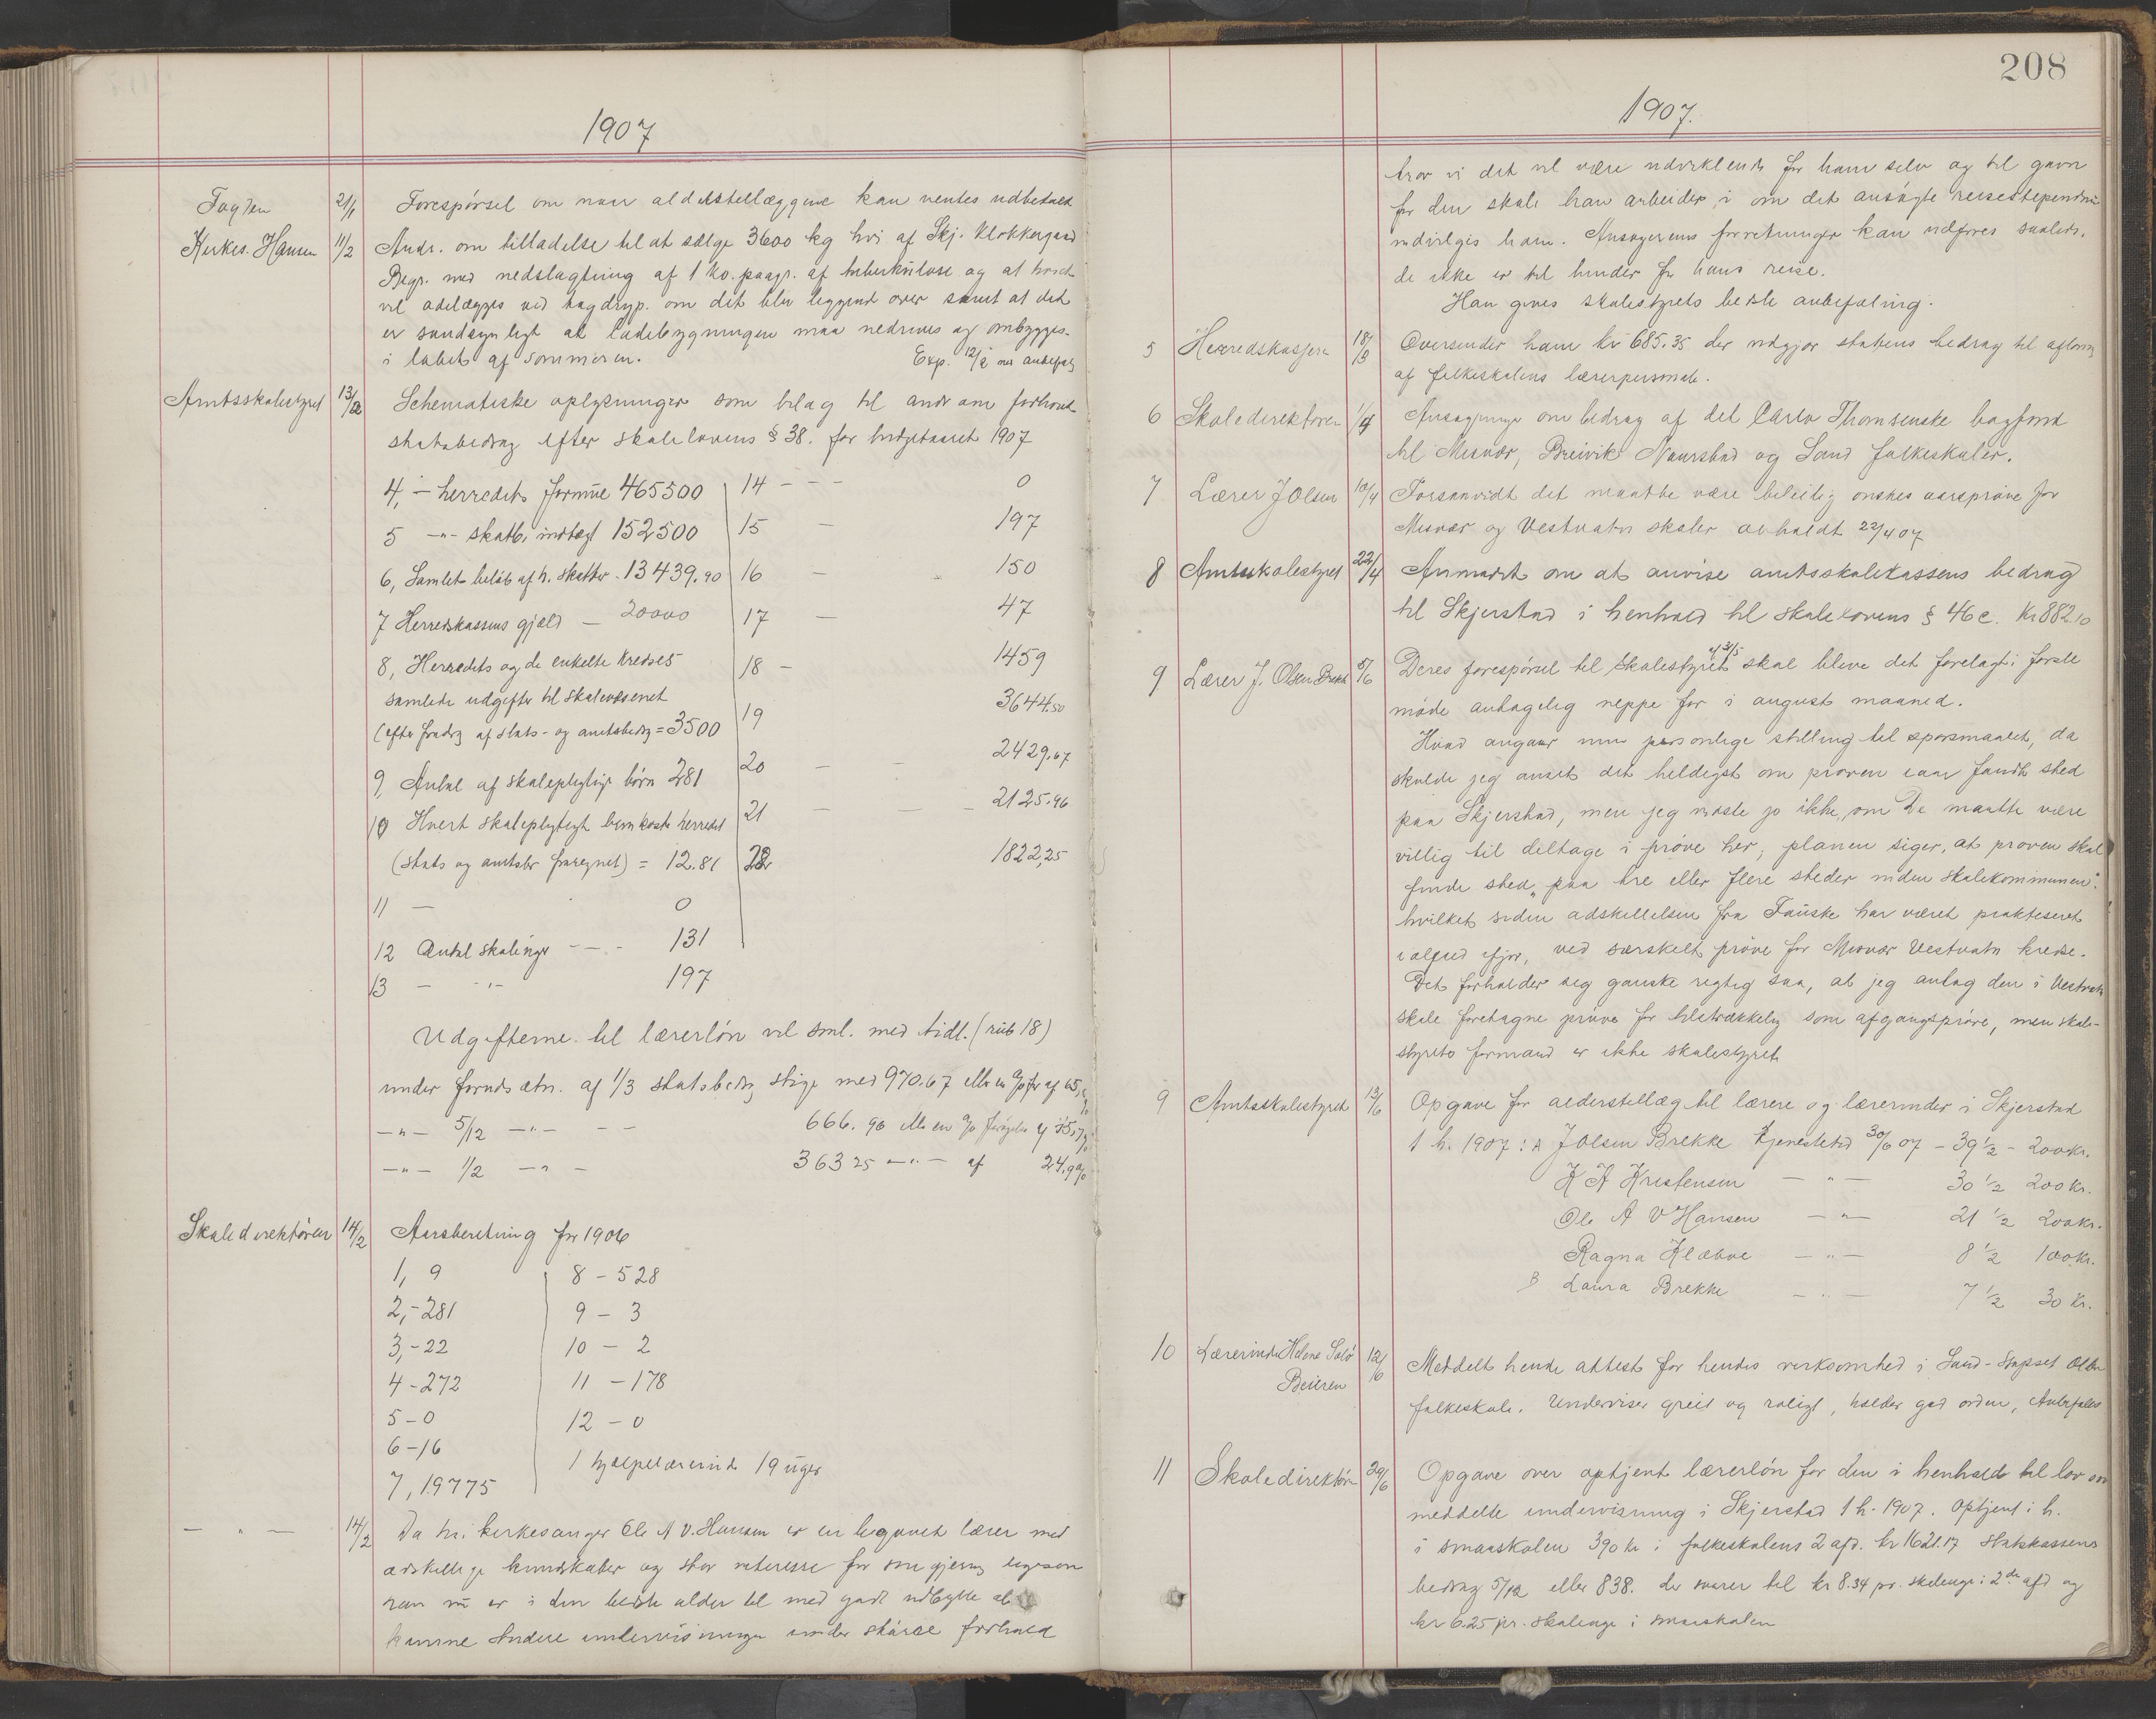 1907
Fogden 21/1 Forespörsel om naar alderstillæggene kan ventes udbetalt
Kirkes. Hansen 11/2 Andr. om tilladelse til at sælge 3600 kg höi af Skj. Klokkergaard
Begr. med nedslagtning af 1 ko. paagr. af tuberkulose og at
vil ödelægges ved tagdryp. om det blir liggende over samt at det
er sandsynligt at ladebygningen maa nedrives og ombygges
i löbet af sommeren. Exp. 12/2 med anbefaling
Amtsskolestyret 13/2 Schematiske oplysninger som bilag til andr om forhöiet
statsbidrag efter skolelovens § 38. for budgetaaret 1907
4, - herredets formue 465500 14 - - - 0
5 -"- skatb. indtægt 152500 15 - 197
6, Samlet belöb af h. skatter 13439.90 16 - 150
7 Herredskassens gjæld - 20000 17 - 47
8, Herredets og de enkelte kredses 18 - 1459
samlede udgifter til skolevæsenet
(efter fradrag af stats- og amtsbidrag = 3500 19 3644.50
9, Antal af skolepligtige börn 281 20 - - 2429.67
10 Hvert skolepligtigt barn koster herredet 21 - - 2125.96
(stats og amtsbr fraregnet) = 12.81 22 1822,25
11 - 0
12 Antal skoleuger - - - 131
13 - -"- 197
Udgifterne til lærerlön vil sml. med tidl. (rub 18)
under forudsætn. af 1/3 statsbidrag stige med 970.67 eller en
-"- 5/12 -"- - - 666.96 eller en % forögelse af
-"- 1/2 -"- - 363 25 -"- af 24.9%
Skoledirektören 14/2 Aarsberetning for 1906
1, 9 8 - 528
2, - 281 9 - 3
3, - 22 10 - 2
4 - 272 11 - 178
5 - 0 12 - 0
6 - 16 1 hjælpelærerinde 19 uger
7, 19775
- " - 14/2 Da hr. kirkesanger Ole A V. Hansen er en begavet lærer med
adskillige kundskaber og stor interesse for sin gjerning ligesom
han nu er i den bedste alder til med godt udbytte at
kunne studere undervisningen under större forhold
208
1907.
tror vi det vil være udviklende for ham selv og til gavn
for den skole han arbeider i om det ansögte reisestipendium
indvilges ham. Ansögerens forretninger kan udföres saaledes,
de ikke er til hinder for hans reise.
Han gives skolestyrets bedste anbefaling.
5 Herredskasserer 18/3 Oversender ham kr 685.35 der udgjör statens bidrag til aflönning
af folkeskolens lærerpersonale.
6 Skoledirektören 1/4 Ansögninger om bidrag af det Carlo Thomsenske bogfond
til Misvær, Breivik Naurstad og Sand folkeskoler.
7 Lærer J Olsen 10/4 Forsaavidt det maatte være beleilig önskes aarspröve for
Misvær og Vestvatn skoler afholdt 22/4 07
8 Amtsskolestyret 22/4 Anmodet om at anvise amtsskolekassens bidrag
til Skjerstad i henhold til skolelovens § 46 c. Kr 882.10
9 Lærer J. Olsen Brekke 5/6 Deres forespörsel til skolestyret af 31/5 skal blive det forelagt i förste
möde antagelig neppe för i august maaned.
Hvad angaar min personlige stilling til spörsmaalet, da
skulde jeg anset det heldigst om pröven iaar fandt sted
paa Skjerstad, men jeg vidste jo ikke, om De maatte være
villig til deltage i pröve her; planen siger, at pröven skal
finde sted "paa tre eller flere steder inden skolekommunen".
hvilket siden adskillelsen fra Fauske har været praktiseret
ialfald ifjor, ved særskilt pröve for Misvær Vestvatn kredse.
Det forholder sig ganske rigtig saa, at jeg antog den i Vestvatn
skole foretagne pröve for tilstrækkelig som afgangspröve, men skole-
styrets formand er ikke skolestyret
9 Amtsskolestyret 13/6 Opgave for alderstillæg til lærere og lærerinder i Skjerstad
1 h. 1907: A J Olsen Brekke Tjenestetid 30/6 07 - 39 1/2 - 200 kr.
K A Kristensen - " - 30 1/2 200 kr.
Ole A V Hansen - " - 21 1/2 200 kr.
Ragna Klæboe - " - 8 1/2 100 kr.
B Laura Brekke - " - 7 1/2 30 kr.
10 Lærerinde Helene 12/6 Meddelt hende attest for hendes virksomhed i Sand-
Beieren folkeskole. Underviser greit og roligt, holder god orden, Anbefales
11 Skoledirektör 29/6 Opgave over optjent lærerlön for den i henhold til lov om
meddelte undervisning i Skjerstad 1 h. 1907. Optjent i h.
i smaaskolen 390 kr i folkeskolens 2 afd. kr 1621.17 Statskassens
bidrag 5/12 eller 838. der svarer til kr 8.34 pr. skoleuge i 2den afd og
kr 6.25 pr. skoleuge i smaaskolen